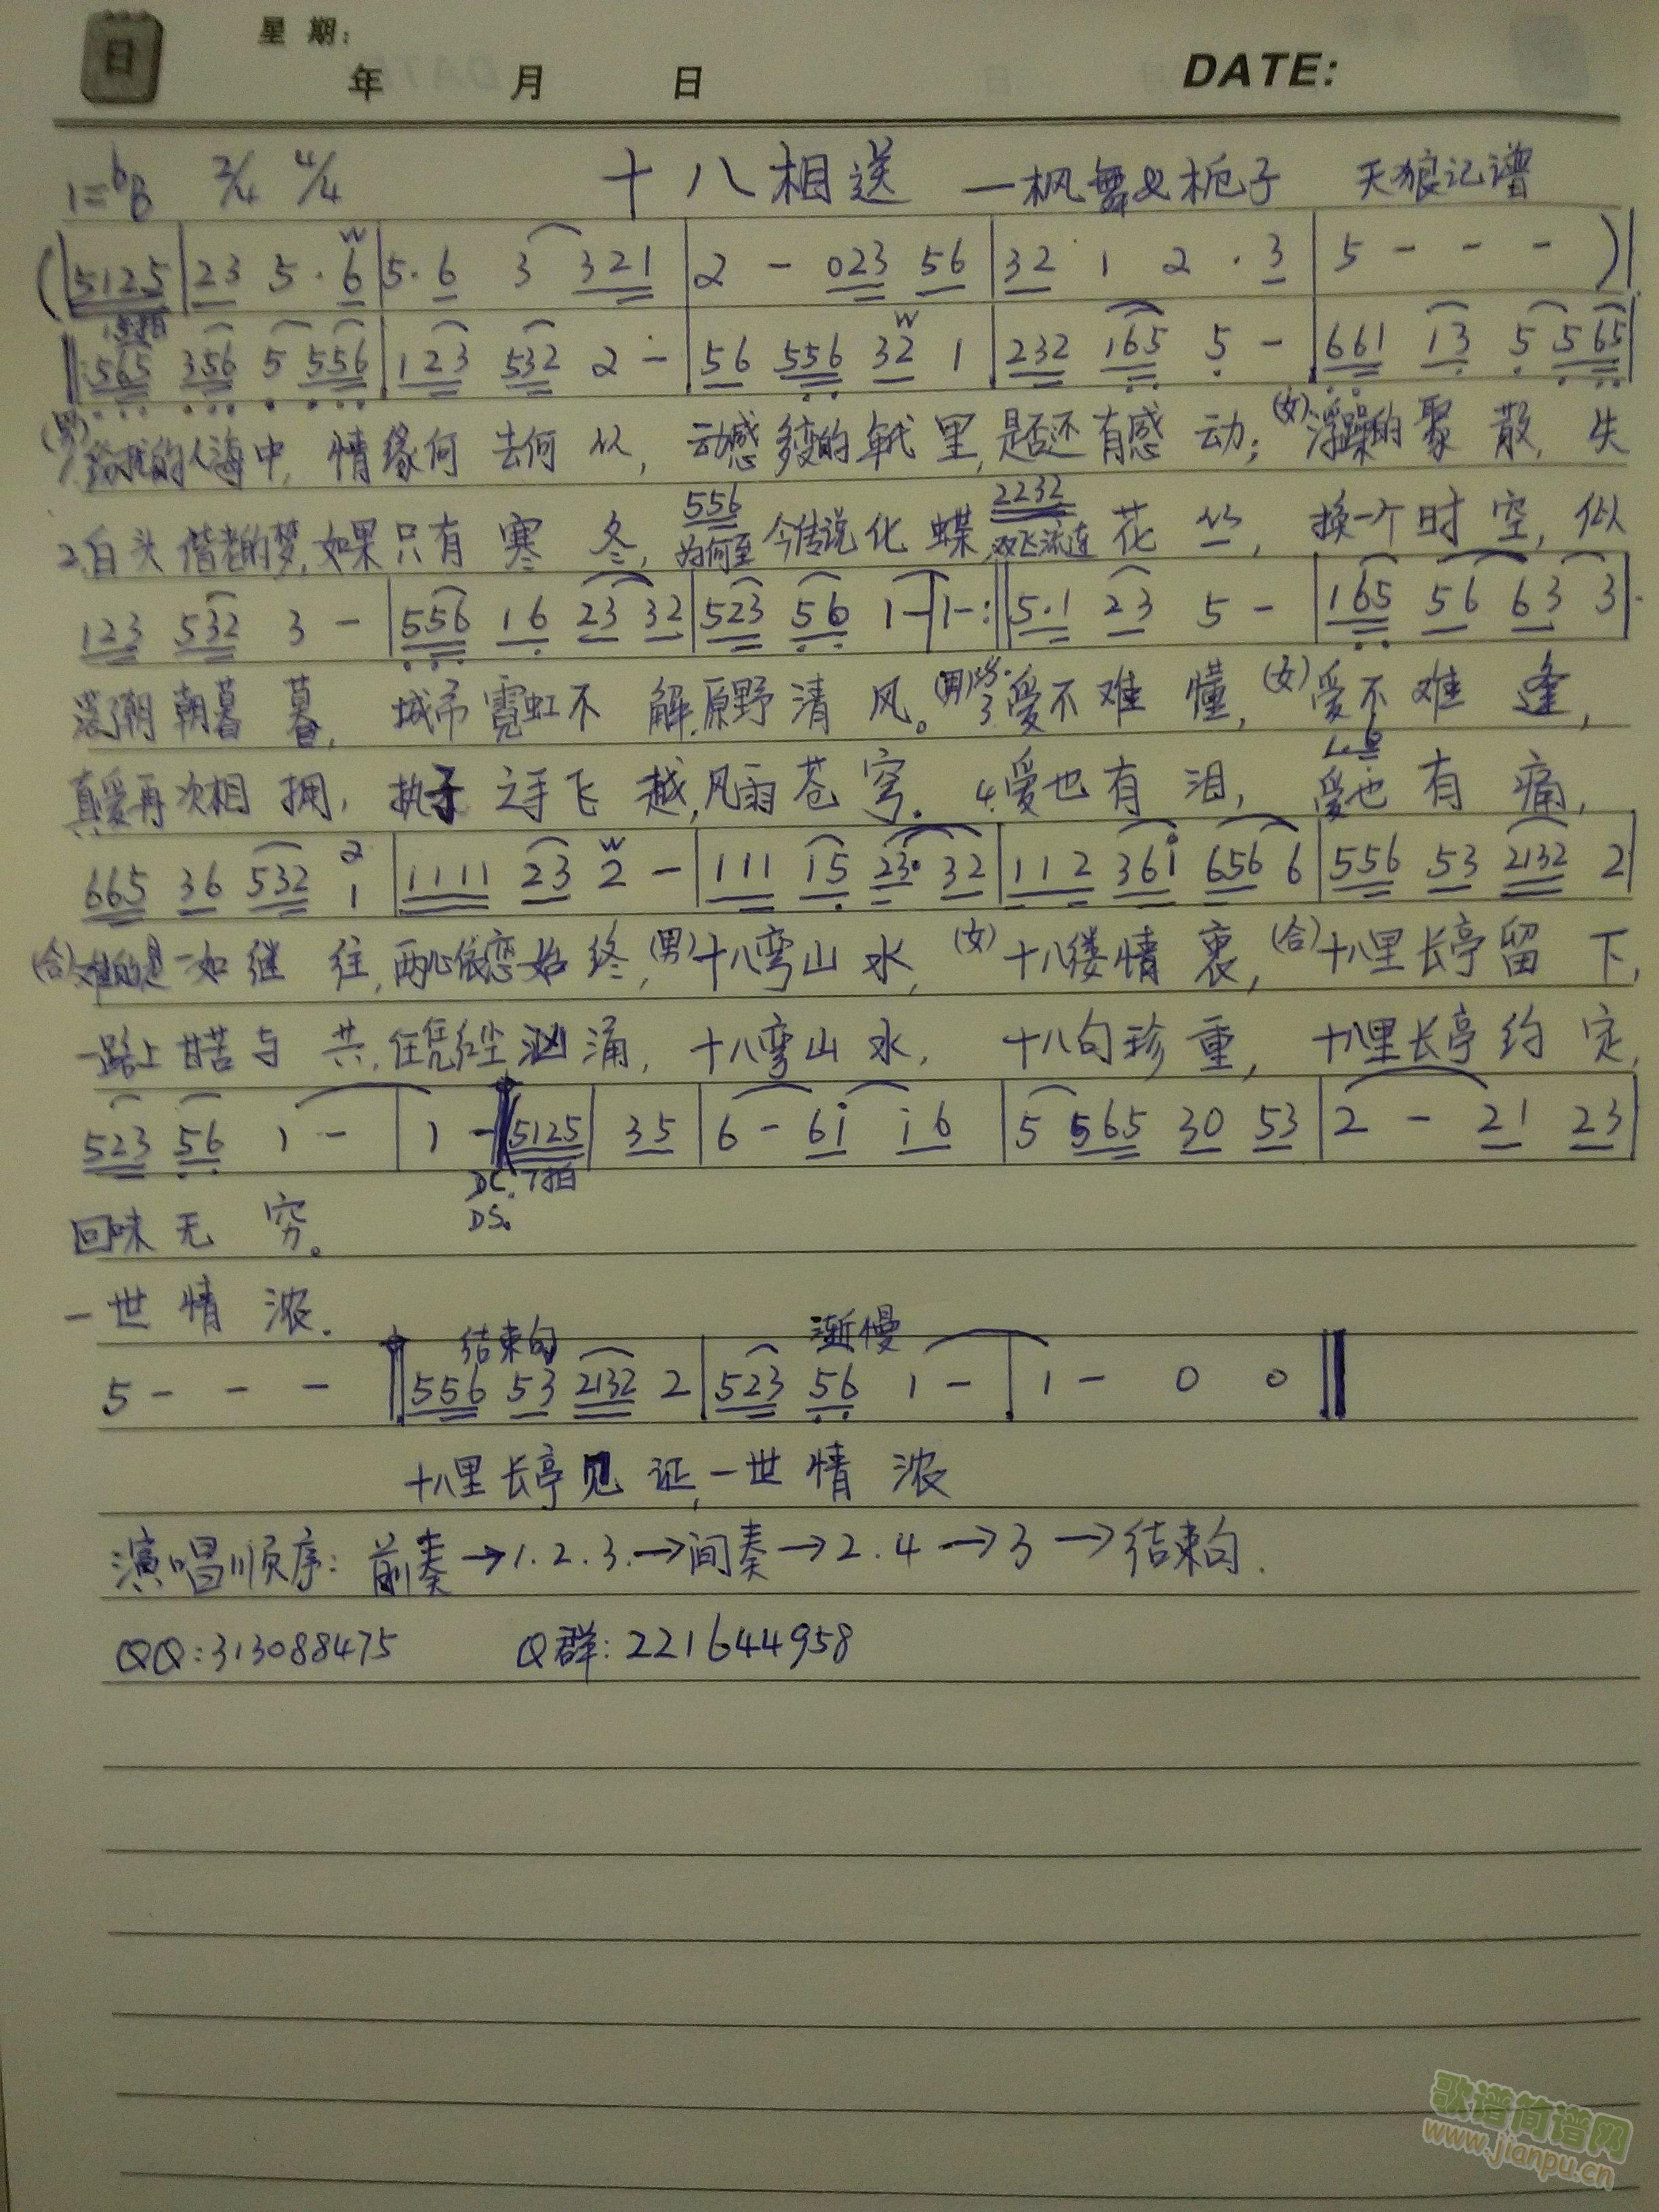 日 星 期:
年 月 日 DATE:
1=bB 2/4 4/4 十八相送 —枫舞&栀子 天狼记谱
(5125|23 5·6|5·6 3 321|2 - 023 56|32 1 2·3|5 - - -)|
565 356 5 556|123 532 2 -|56 556 32 1|232 165 5 -|661 13 5 565|
(男)1.的人海中, 情缘何去何从, 动感多变的年代里, 是否还有感动; (女)浮躁的聚散, 失
556 2232
2.白头偕老的梦, 如果只有寒冬, 为何至今传说化蝶, 双飞流连花丛, 换一个时空, 似
123 532 3 -|556 16 23 32|523 56 1 -|1 -:‖5·1 23 5 -|165 56 63 3|
落了朝朝暮暮, 城市霓虹不解, 原野清风。(男)3.爱不难懂, (女)爱不难逢,
1·6
真爱再次相拥, 执子之手飞越, 风雨苍穹. 4.爱也有泪, 爱也有痛,
665 36 532 2 1|1111 23 2 -|111 15 23 32|112 361 656 6|556 53 2132 2|
(合)难的是一如继往, 两心依恋始终, (男)十八弯山水, (女)十八缕情衷, (合)十八里长亭留下,
一路上甘苦与共, 任凭红尘汹涌, 十八弯山水, 十八句珍重, 十八里长亭约定,
523 56 1 -|1 -‖(5125|35|6 - 61 16|5 565 30 53|2 - 21 23|
DC. 7拍
回味无穷。 DS.
一世情浓.
结束句 渐慢
5 - - -‖556 53 2132 2|523 56 1 -|1 - 0 0‖
十八里长亭见证, 一世情浓
演唱顺序: 前奏→1.2.3.→间奏→2.4→3→结束句.
QQ:313088475 Q群:221644958
歌谱简谱网
www.jianpu.cn